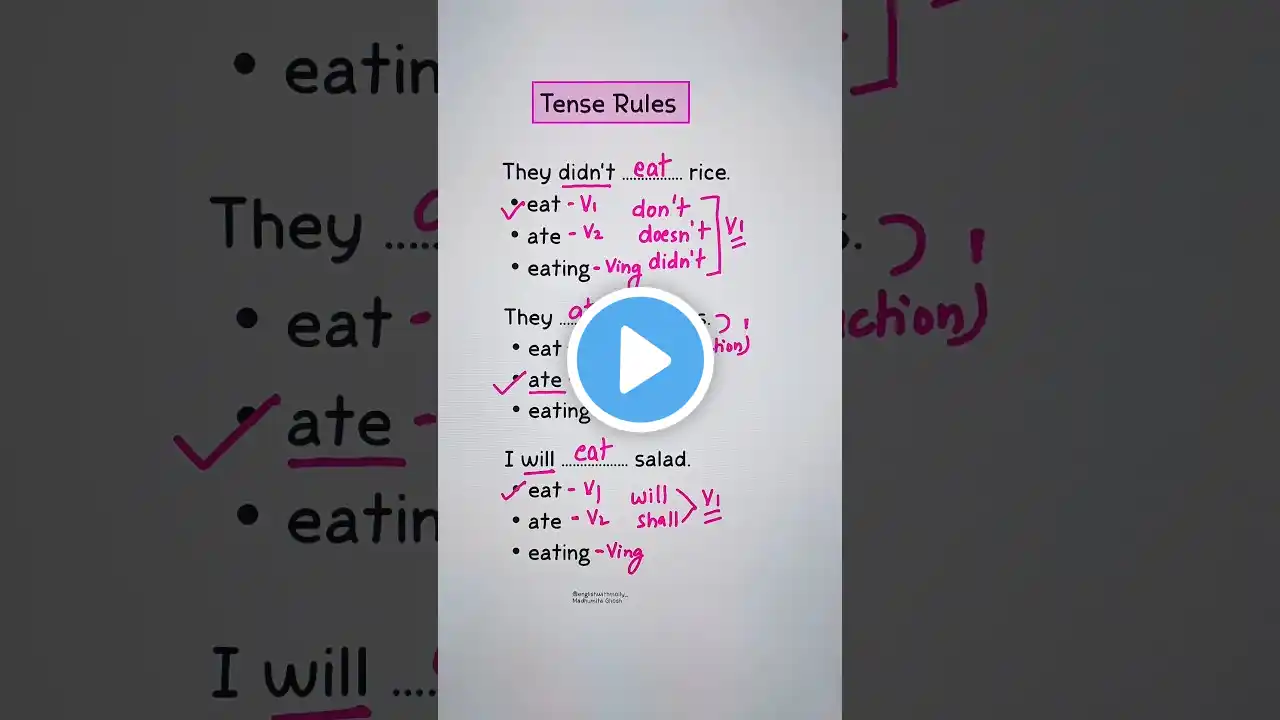 Tense Rules
They didn't ....eat.... rice.
• eat - V1 don't
• ate - V2 doesn't V1
• eating - Ving didn't
They
• eat
• ate
• eating
I will ....eat.... salad.
• eat - V1 will
• ate - V2 shall V1
• eating - Ving
@englishwithmolly_
Madhumita Ghosh